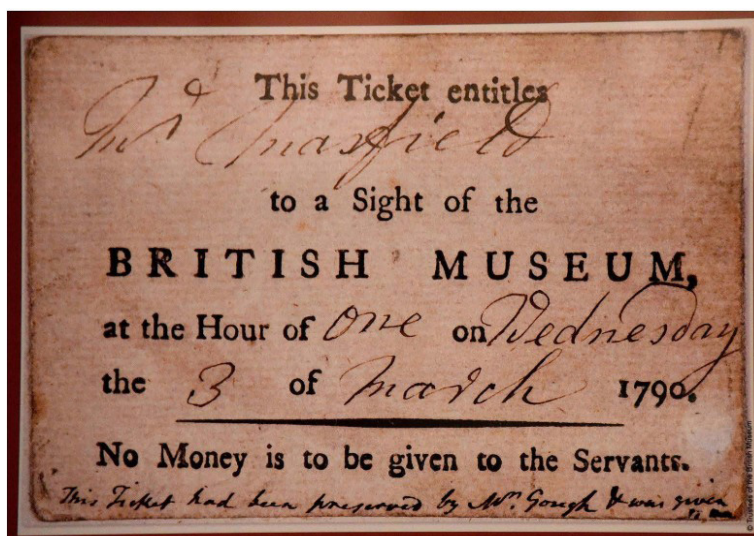 This Ticket entitles
Maxfield
to a Sight of the
BRITISH MUSEUM,
at the Hour of One on Wednesday
the 3 of March 1790.
No Money is to be given to the Servants.
This Ticket had been preserved by Mr. Gough & was given